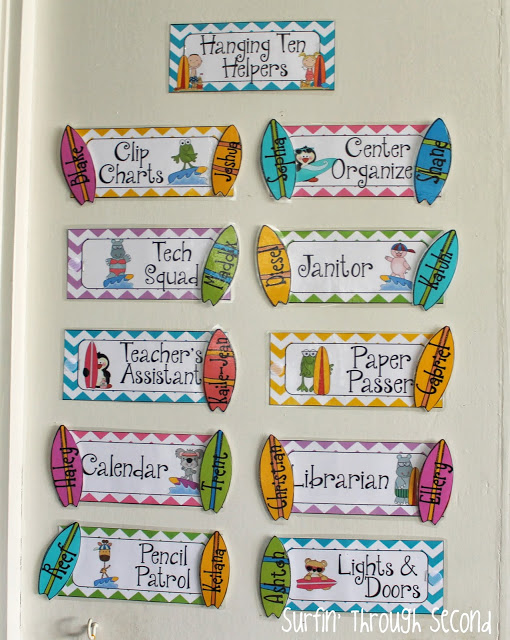 Hanging Ten
Helpers
Blake
Clip
Charts
Joshua
Sophia
Center
Organize
Shane
Tech
Squad
Maddox
Diesel
Janitor
Kaitlin
Teacher's
Assistant
Kaile-Jean
Paper
Passer
Gabriel
Haley
Calendar
Trent
Christian
Librarian
Ellery
Reef
Pencil
Patrol
Keilana
Ashton
Lights &
Doors
Surfin' Through Second